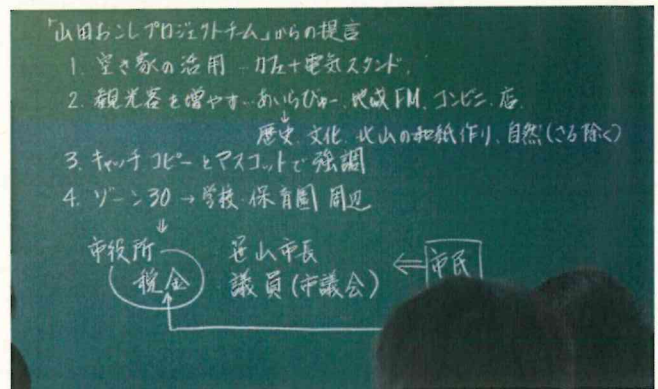 「山田おこしプロジェクトチーム」からの提言
1. 空き家の活用…カフェ+電気スタンド.
2. 観光客を増やす…あいらびゅー.地域FM.コンビニ.店.
↓
歴史.文化.北山の和紙作り、自然(さる除く)
3. キャッチコピーとマスコットで強調
4. ゾーン30→学校.保育園周辺
↓
市役所 笹山市長
税金 議員(市議会) ⇐ 市民